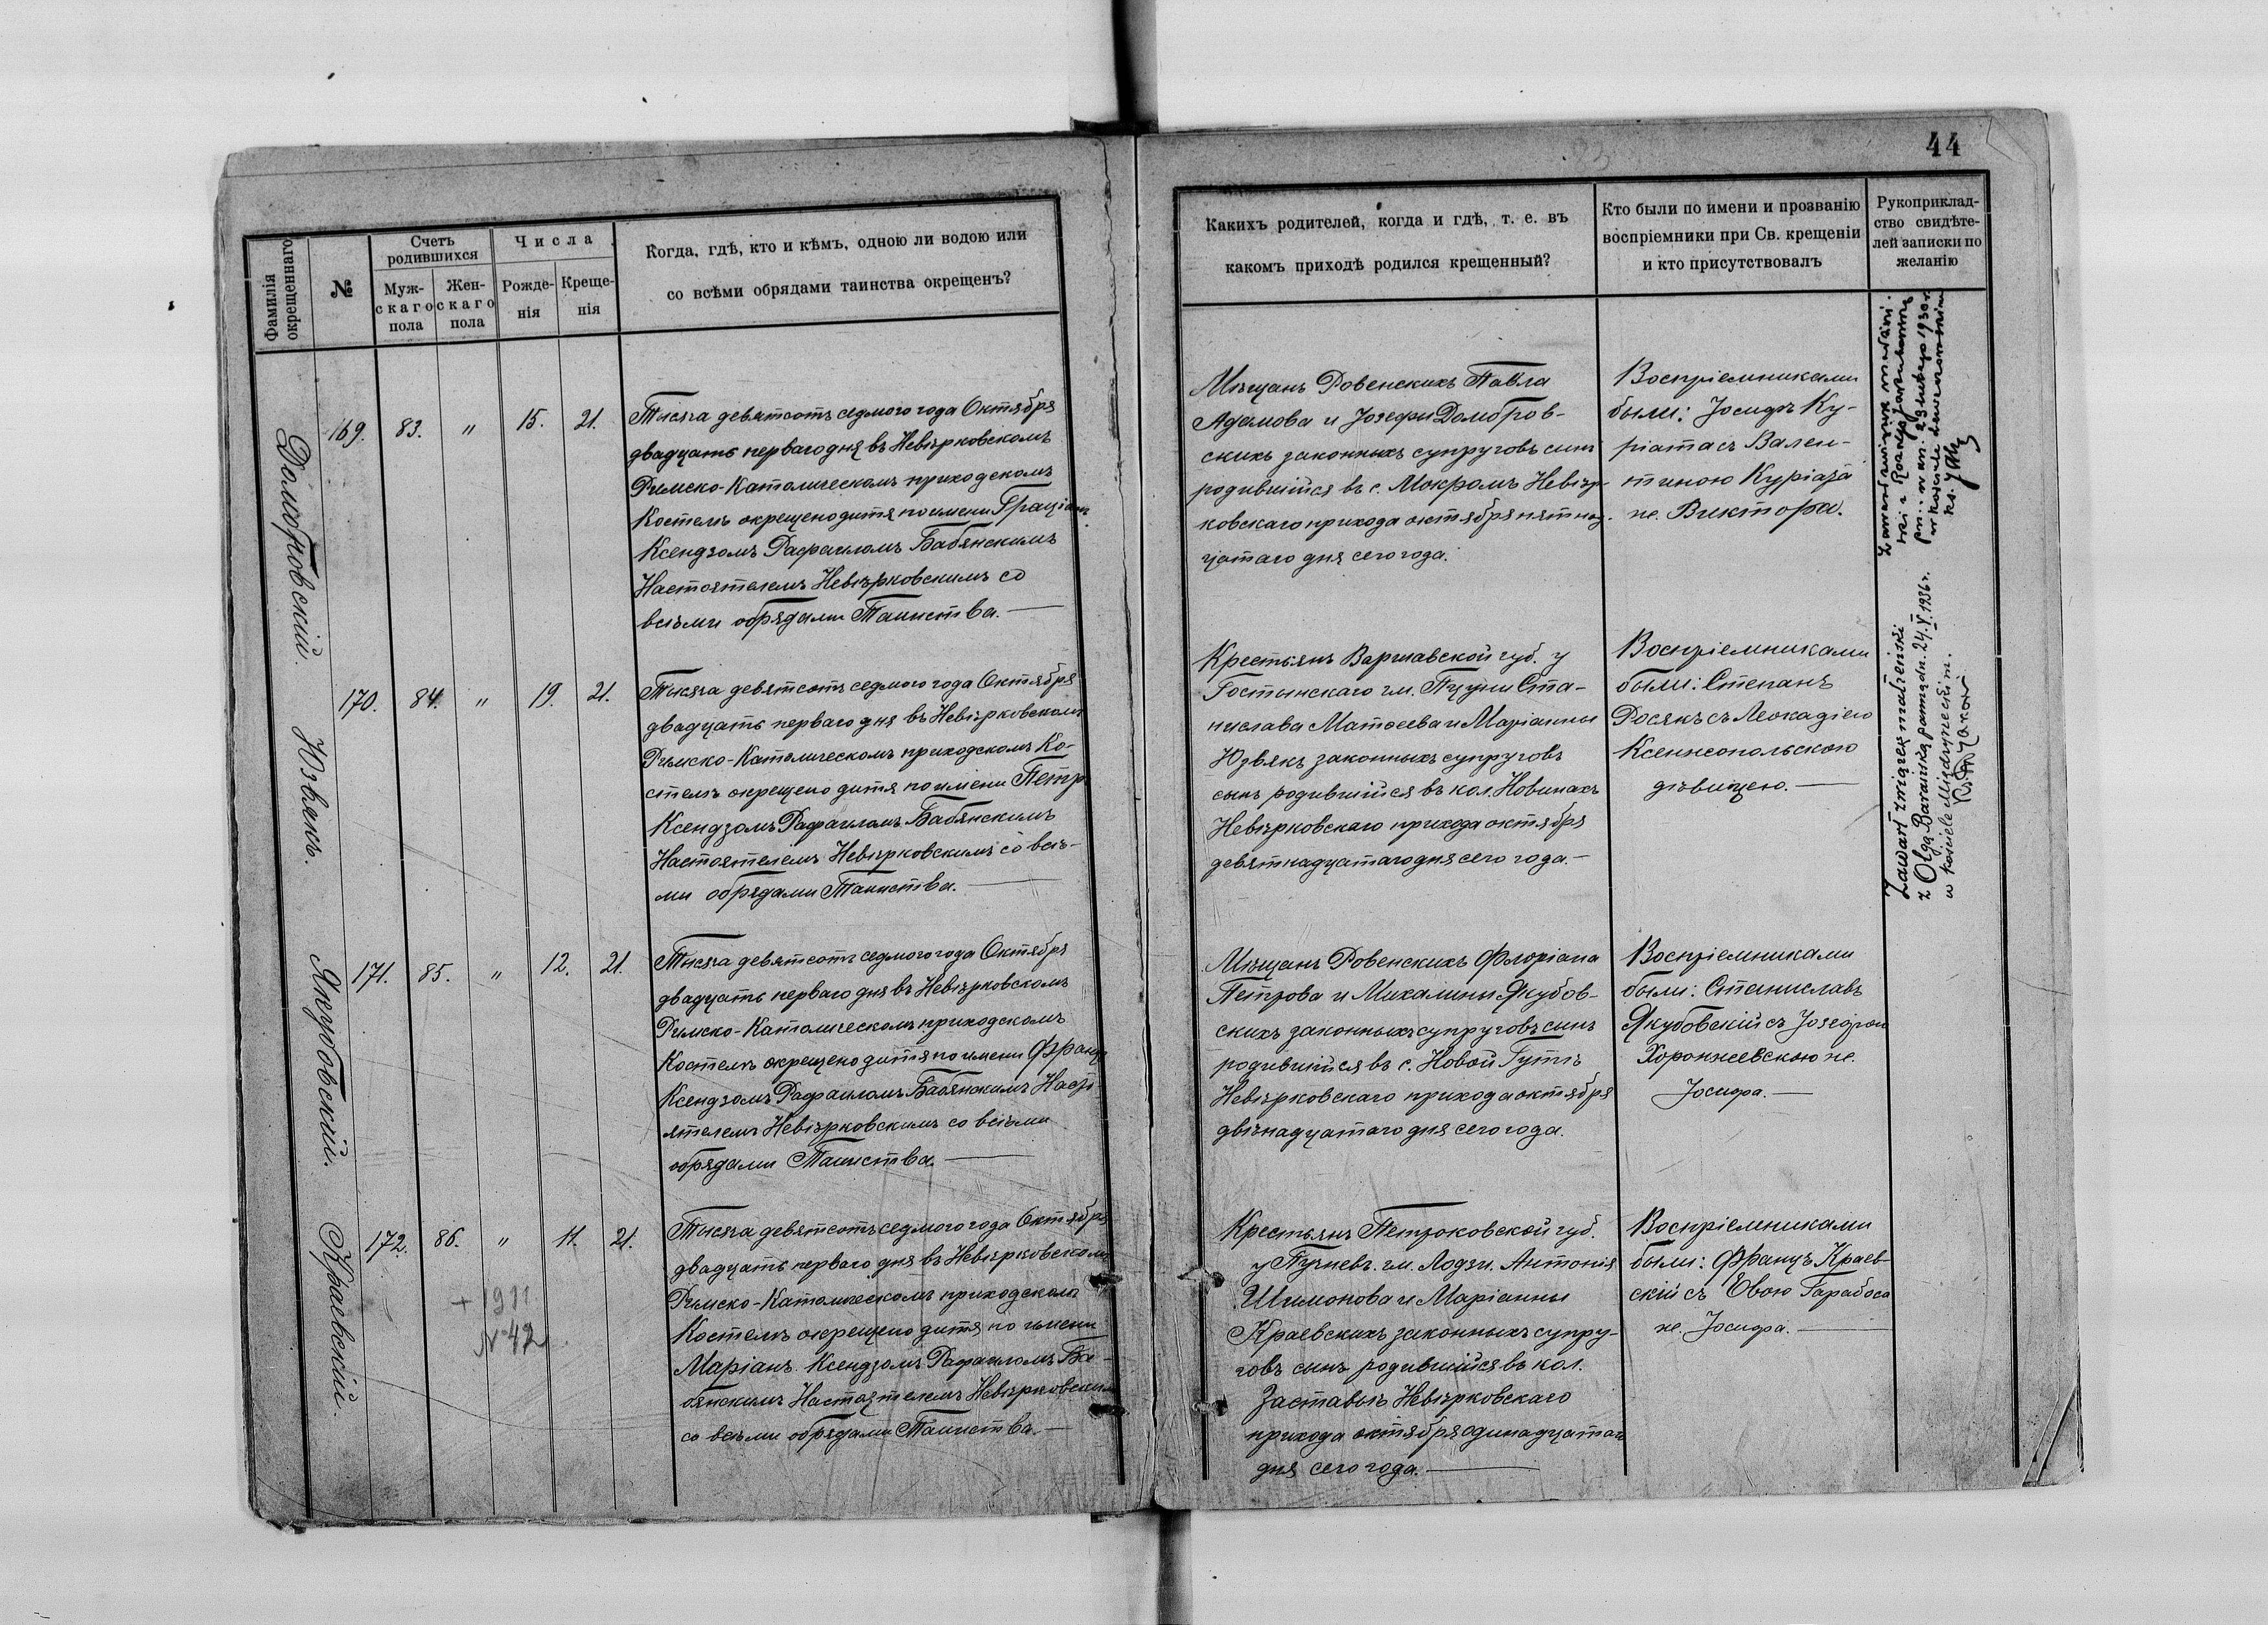 44
Фамилія
окрещеннаго
№
Счетъ
родившихся
Муж-
скаго
пола
Жен-
скаго
пола
Числа
Рожде-
нія
Креще-
нія
Когда, гдѣ, кто и кѣмъ, одною ли водою или
со всѣми обрядами таинства окрещенъ?
Какихъ родителей, когда и гдѣ, т. е. въ
какомъ приходѣ родился крещенный?
Кто были по имени и прозванію
воспріемники при Св. крещеніи
и кто присутствовалъ
Рукоприклад-
ство свидѣте-
лей записки по
желанію
Домбровскій.
169. 83. " 15. 21.
Тысяча девятсотъ седмого года Октября
двадцать перваго дня въ Невѣрковскомъ
Римско-Католическомъ приходскомъ
Костелѣ окрещено дитя по имени Граціанъ
Ксендзомъ Рафаиломъ Бабянскимъ
Настоятелемъ Невѣрковскимъ со
всѣми обрядами Таинства.
Мѣщанъ Ровенскихъ Павла
Адамова и Іозефы Домбров-
скихъ законныхъ супруговъ сынъ
родившійся въ с. Мокромъ Невѣр-
ковскаго прихода октября пятнад-
цатаго дня сего года.
Воспріемниками
были: Іосифъ Ку-
ріата съ Вален-
тиною Куріата
ж. Виктора.
Zawarł związek małżeński
w kościele
Юзвякъ.
170. 84. " 19. 21.
Тысяча девятсотъ седмого года Октября
двадцать перваго дня въ Невѣрковскомъ
Римско-Католическомъ приходскомъ Ко-
стелѣ окрещено дитя по имени Петръ
Ксендзомъ Рафаиломъ Бабянскимъ
Настоятелемъ Невѣрковскимъ со всѣ-
ми обрядами Таинства.
Крестьянъ Варшавской губ. у
Гостынскаго гм. Пацыни Ста-
нислава Матѳеева и Маріанны
Юзвякъ законныхъ супруговъ
сынъ родившійся въ кол. Новинахъ
Невѣрковскаго прихода октября
девятнадцатаго дня сего года.
Воспріемниками
были: Степанъ
Росякъ съ Леокадіею
Ксенжопольскою
дѣвицею.
Zawarł związek małżeński
z Olgą Barańską panną dn. 24.V 1936 r.
w kościele Międzyrzeckim.
Якубовскій.
171. 85. " 12. 21.
Тысяча девятсотъ седмого года Октября
двадцать перваго дня въ Невѣрковскомъ
Римско-Католическомъ приходскомъ
Костелѣ окрещено дитя по имени Францъ
Ксендзомъ Рафаиломъ Бабянскимъ Насто-
ятелемъ Невѣрковскимъ со всѣми
обрядами Таинства.
Мѣщанъ Ровенскихъ Флоріана
Петрова и Михалины Якубов-
скихъ законныхъ супруговъ сынъ
родившійся въ с. Новой Гутѣ
Невѣрковскаго прихода октября
двѣнадцатаго дня сего года.
Воспріемниками
были: Станиславъ
Якубовскій съ Іозефою
Хоронжевскою ж.
Іосифа.
Краевскій.
172. 86. " 11. 21.
+ 1911
№ 42
Тысяча девятсотъ седмого года Октября
двадцать перваго дня въ Невѣрковскомъ
Римско-Католическомъ приходскомъ
Костелѣ окрещено дитя по имени
Маріанъ Ксендзомъ Рафаиломъ Ба-
бянскимъ Настоятелемъ Невѣрковскимъ
со всѣми обрядами Таинства.
Крестьянъ Петроковской губ.
у Пучнев. гм. Лодзи. Антонія
Шимонова и Маріанны
Краевскихъ законныхъ супру-
говъ сынъ родившійся въ кол.
Заставьѣ Невѣрковскаго
прихода октября одинадцатаго
дня сего года.
Воспріемниками
были: Францъ Краев-
скій съ Евою Гарабоса
ж. Іосифа.